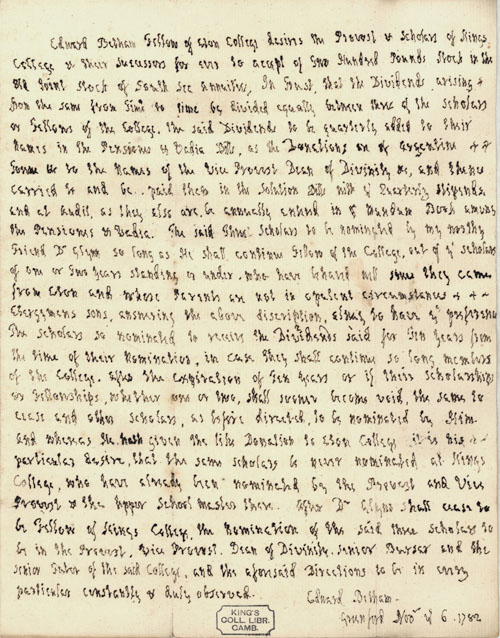 Edward Betham Fellow of Eton College desires the Provost & Scholars of Kings
College & their Successors for ever to accept of Two Hundred Pounds Stock in the
Old Joint Stock of South Sea annuities, In Trust, that the Dividends arising
from the same from Time to time be divided equally between three of the Scholars
or Fellows of the College. The said Dividends to be quarterly added to their
names in the Pensiones & Vadia Bills, as the Donations are of
to the names of the Vice Provost Dean of Divinity &c, and thence
carried to and be paid them in the Solution Bills with ye Quarterly stipends,
and at audit, as they also are, be annually enterd in ye Mundum Book amongst
the Pensiones & Vadia. The said Three Scholars to be nominated by my worthy
Friend Dr Glynn so long as He shall continue Fellow of the College, out of ye scholars
of one or two years standing or under, who have behaved well since they came
from Eton and whose Parents are not in opulent circumstances
Clergymens sons, answering the above discription, always to have ye preference
The Scholars so nominated to receive the Dividends said for Ten years from
the time of their Nomination, in case they shall continue so long members
of the College. After the expiration of Ten years or if their Scholarships
or Fellowships, whether one or two, shall sooner become void, the same to
cease and other scholars, as before directed, to be nominated by Him.
and whereas He hath given the like Donation to Eton College it is his
particular desire, that the same scholars be never nominated at Kings
College, who have already been nominated by the Provost and Vice
Provost & the upper School master there. After Dr Glynn shall cease to
be Fellow of Kings College, the nomination of the said three scholars to
be in the Provost, Vice Provost, Dean of Divinity, senior Bursar and the
senior Tutor of the said College, and the aforesaid Directions to be in every
particular constantly & duly observed.
Edward Betham.
Greenford Novr ye 6. 1782
KING'S
COLL. LIBR.
CAMB.